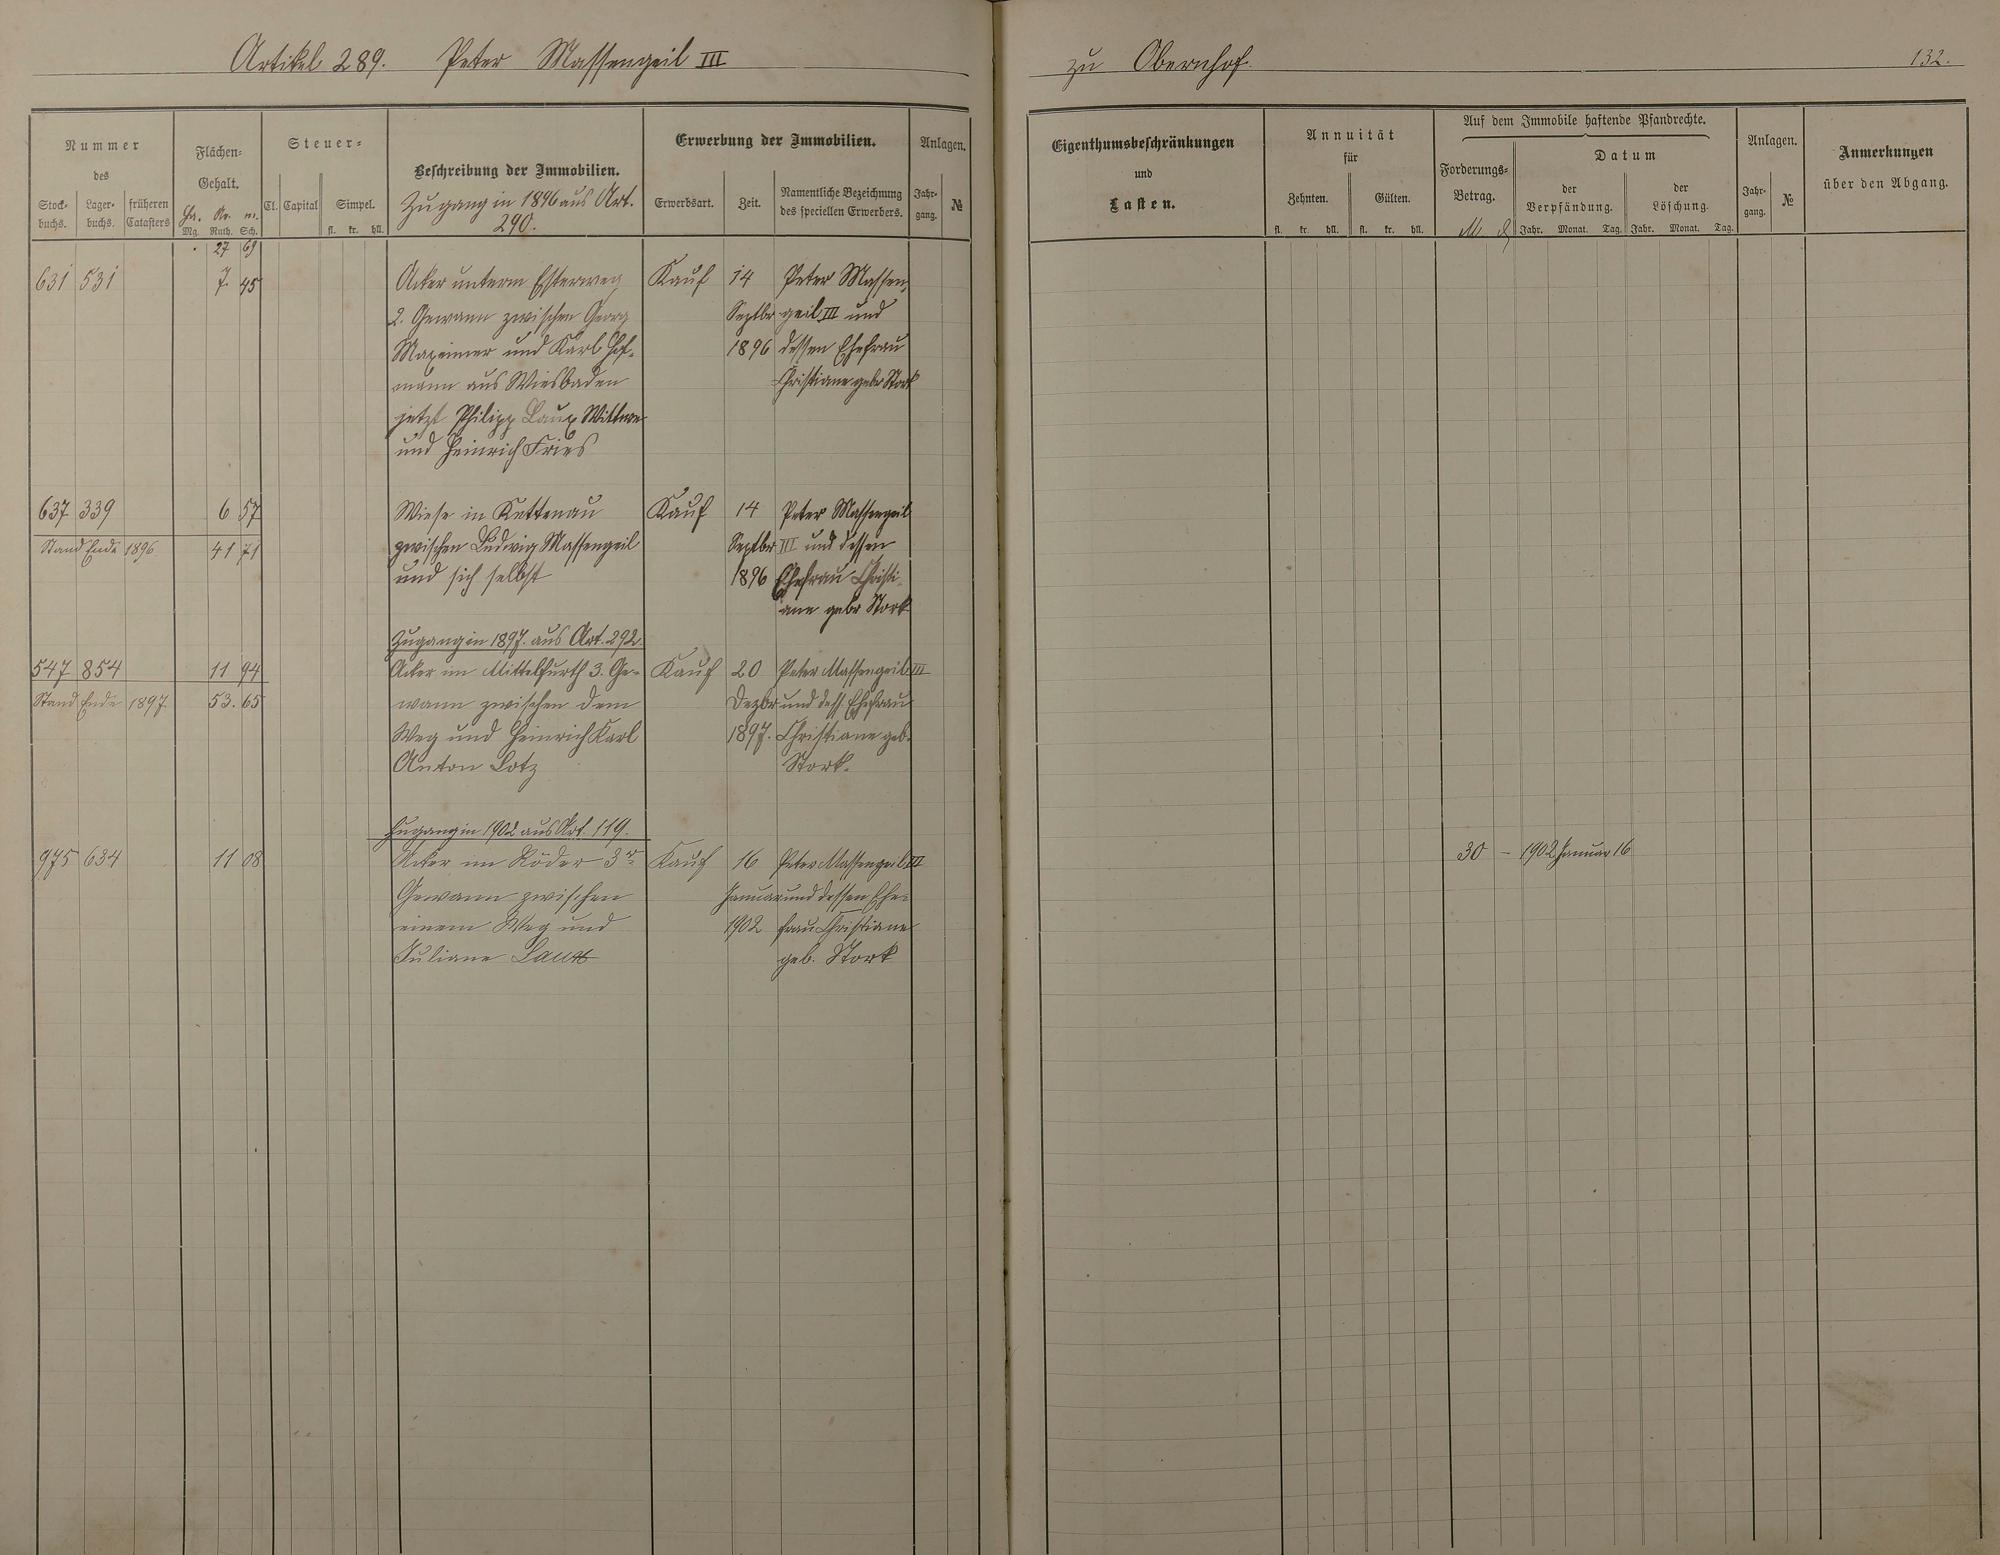 Artikel 289. Peter Massengeil III
zu Obernhof.
132.
Nummer
des
Stock-
buchs.
Lager-
buchs.
früheren
Catasters
Flächen-
Gehalt.
Ha. Ar. m.
Mg. Ruth. Sch.
Steuer-
Cl. Capital Simpel.
fl. kr. hll.
Beschreibung der Immobilien.
Zugang in 1896 aus Art.
290.
Erwerbung der Immobilien.
Erwerbsart.
Zeit.
Namentliche Bezeichnung
des speciellen Erwerbers.
Anlagen.
Jahr-
gang.
№
Eigenthumsbeschränkungen
und
Lasten.
Annuität
für
Zehnten. Gülten.
fl. kr. hll. fl. kr. hll.
Auf dem Immobile haftende Pfandrechte.
Forderungs-
Betrag.
M
Datum
der
Verpfändung.
Jahr. Monat. Tag.
der
Löschung.
Jahr. Monat. Tag.
Anlagen.
Jahr-
gang.
№
Anmerkungen
über den Abgang.
27 69
631 531 7 45 Acker unterm Esterweg Kauf 14 Peter Massen-
2. Gewann zwischen Georg Septbr geil III und
Maxeiner und Karl Hof- 1896 dessen Ehefrau
mann aus Wiesbaden Christiane gebr Stork
jetzt Philipp Laux Wittwe
und Heinrich Fries
637 339 6 57 Wiese in Kettenau Kauf 14 Peter Massengeil
Stand Ende 1896 41 71 zwischen Ludwig Massengeil Septbr III und dessen
und sich selbst 1896 Ehefrau Christi-
ane gebr Stork
Zugang in 1897. aus Art. 292.
547 854 11 94 Acker im Mittelfurth 3. Ge- Kauf 20 Peter Massengeil III
Stand Ende 1897 53. 65 wann zwischen dem Dezbr und dess. Ehefrau
Weg und Heinrich Karl 1897. Christiane geb.
Anton Lotz Stork.
Zugang in 1902 aus Art. 119.
975 634 11 08 Acker im Röder 3r Kauf 16 Peter Massengeil III 30 – 1902 Januar 16
Gewann zwischen Januar und dessen Ehe-
einem Weg und 1902 frau Christiane
Juliane Laux geb. Stork